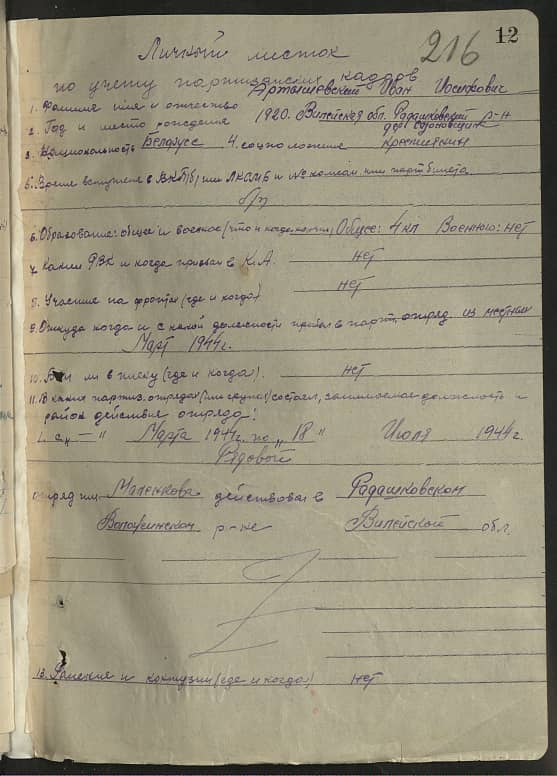 12
216
Личный листок
по учету партизанских кадров
1. Фамилия имя и отчество Иван Иосифович
2. Год и место рождения 1920. Вилейская обл. Радашковский р-н
дер.
3. Национальность Беларусс 4. соцположение крестьянин
5. Время вступления в ВКП(б) или ЛКСМБ и № комсом. или партбилета
б/п
6. Образование: общее и военное (что и когда кончил) Общее: 4 кл Военное: нет
7. Каким РВК и когда призван в К.А. нет
8. Участие на фронтах (где и когда) нет
9. Откуда когда и с какой должности прибыл в парт. отряд. из местных
Март 1944 г.
10. Был ли в плену (где и когда). нет
11. В каких партиз. отрядах (или группах) состоял, занимаемая должность и
район действие отряда:
1. с „ — " Марта 1944 г. по „ 18 " Июля 1944 г.
Рядовой
отряд им. Маленкова действовал в Радашковском
Воложинском р-не Вилейской обл.
13. Ранения и контузии (где и когда) нет